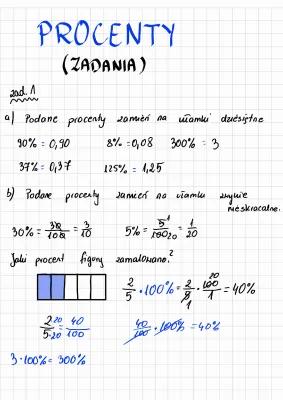 PROCENTY
(ZADANIA)
zad. 1
a) Podane procenty zamień na ułamki dziesiętne
90% = 0,90 8% = 0,08 300% = 3
37% = 0,37 125% = 1,25
b) Podane procenty zamień na ułamki zwykłe
nieskracalne.
30% = 30/100 = 3/10 5% = 5 1/100 20 = 1/20
Jaki procent figury zamalowano?
2/5 · 100% = 2/5 1 · 100 20/1 = 40%
2 20/5 · 20 = 40/100 40/100 · 100% = 40%
3 · 100% = 300%